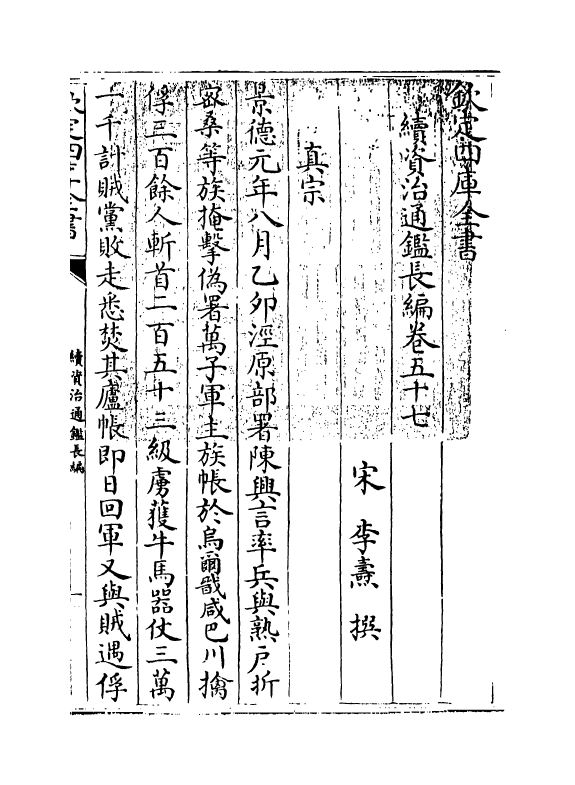 欽定四庫全書
續資治通鑑長編卷五十七
宋 李燾 撰
真宗
景德元年八月乙卯涇原部署陳興言率兵與熟户折
宻桑等族掩擊偽署萬子軍主族帳於烏爾戬咸巴川擒
俘三百餘人斬首二百五十三級虜獲牛馬器仗三萬
一千計賊黨敗走悉焚其廬帳即日回軍又與賊遇俘
欽定四庫全書
續資治通鑑長編
一